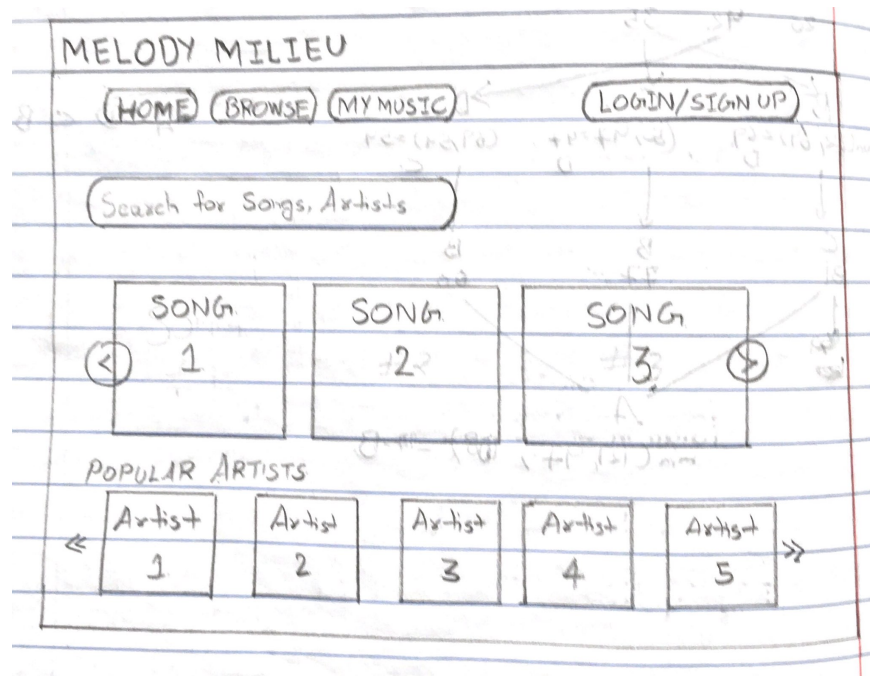 MELODY MILIEU
HOME BROWSE MY MUSIC LOGIN/SIGN UP
Search for Songs, Artists
SONG SONG SONG
< 1 2 3 >
POPULAR ARTISTS
Artist Artist Artist Artist Artist
« 1 2 3 4 5 »